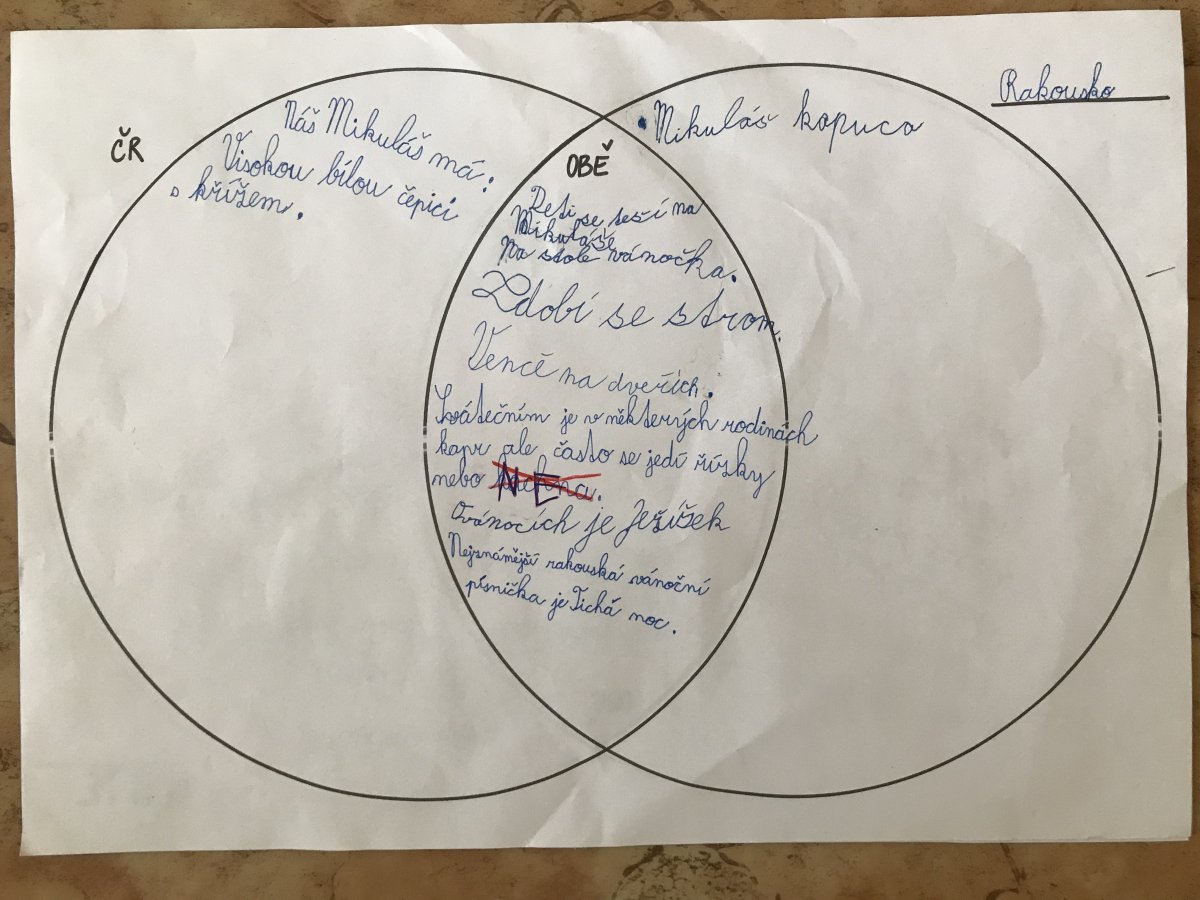 ČR
Náš Mikuláš má:
Visokou bílou čepici
s křížem.
OBĚ
Deti se teší na
Mikuláše
Na stole vánočka.
Zdobí se strom.
Vencě na dveřích.
Svátečním je v některých rodinách
kapr ale často se jedí řízky
nebo
NE
O vánocích je Ježíšek
Nejznámější rakouská vánoční
písnička je Tichá noc.
Rakousko
Mikuláš kapuca